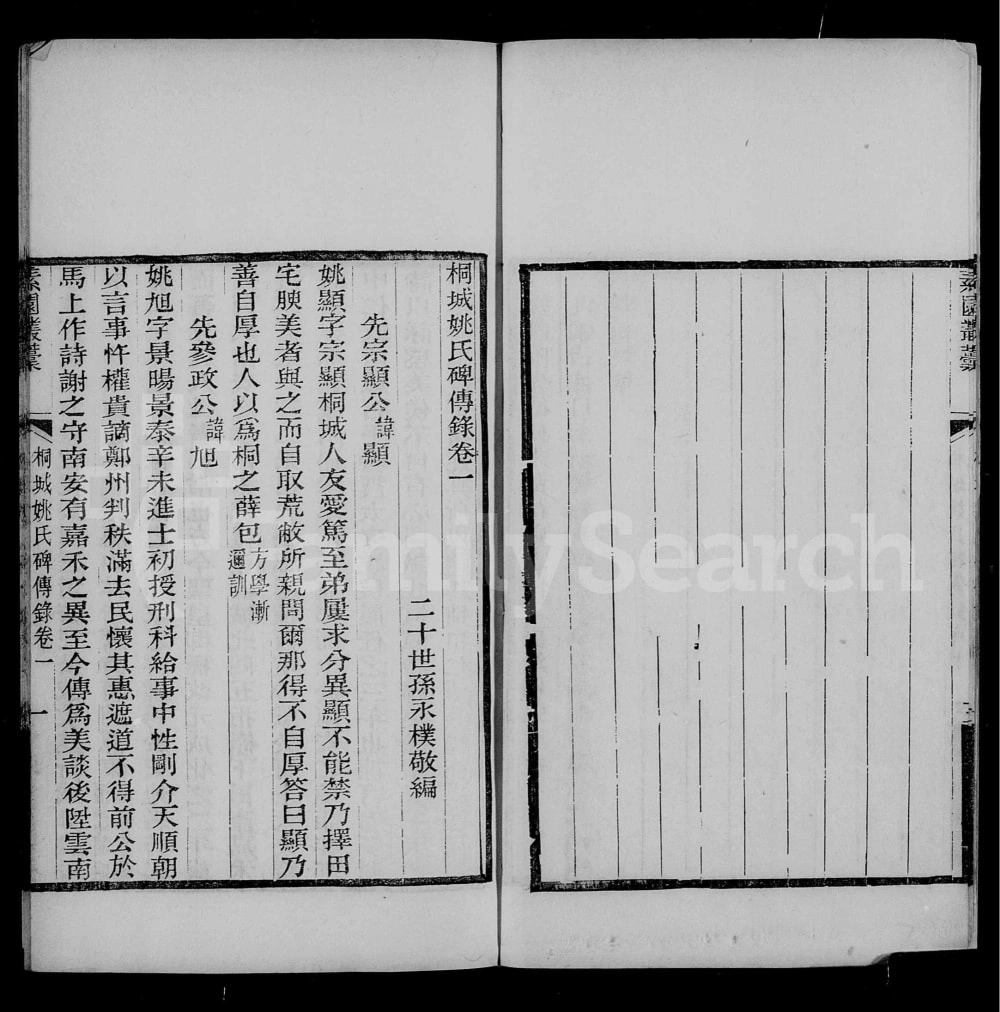 素園叢藁
桐城姚氏碑傳錄卷一
二十世孫永樸敬編
先宗顯公諱顯
姚顯字宗顯桐城人友愛篤至弟屢求分異顯不能禁乃擇田
宅腴美者與之而自取荒敝所親問爾那得不自厚答曰顯乃
善自厚也人以爲桐之薛包方學漸
邇訓
先參政公諱旭
姚旭字景暘景泰辛未進士初授刑科給事中性剛介天順朝
以言事忤權貴謫鄭州判秩滿去民懷其惠遮道不得前公於
馬上作詩謝之守南安有嘉禾之異至今傳爲美談後陞雲南
素園叢藁
桐城姚氏碑傳錄卷一
一
FamilySearch